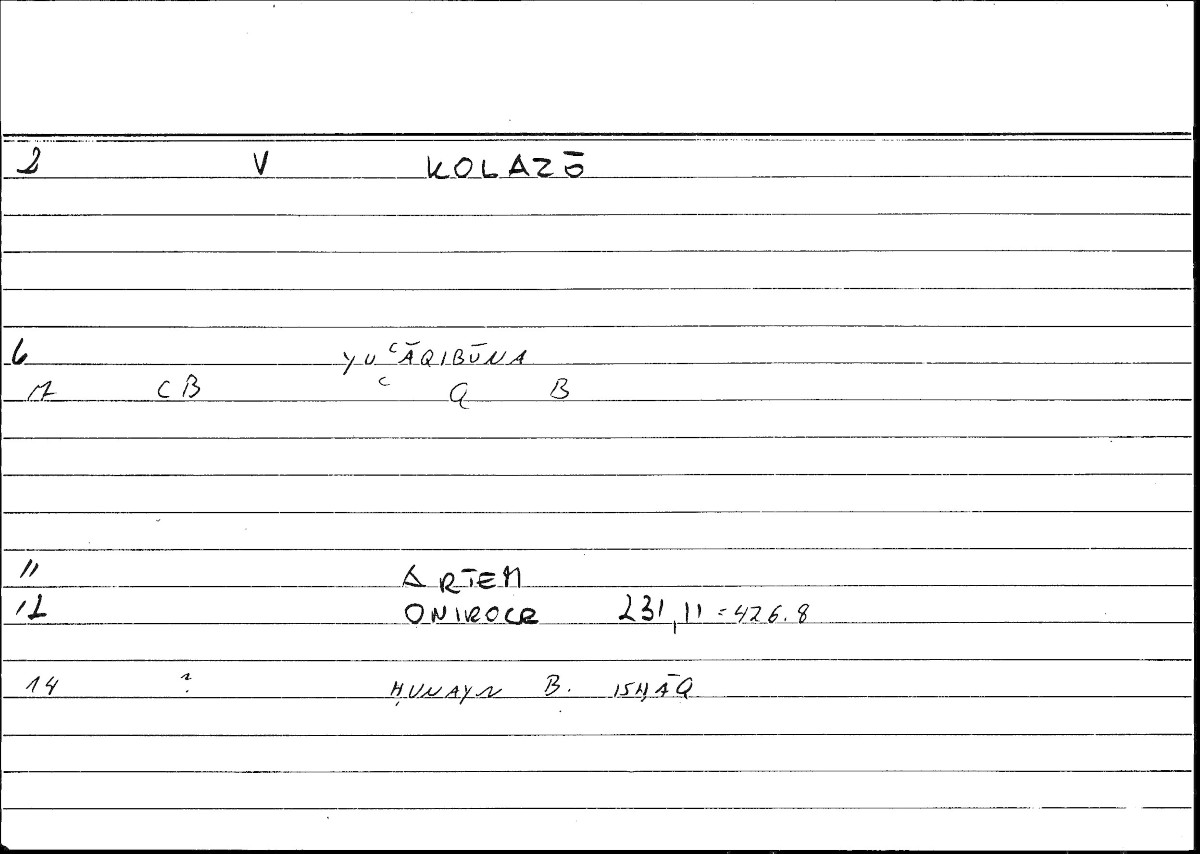 2 V KOLAZŌ
6 YUʿĀQIBŪNA
17 CB ʿ Q B
11 ARTEM
12 ONIROCR 231,11=426.8
14 ? ḤUNAYN B. ISḤĀQ